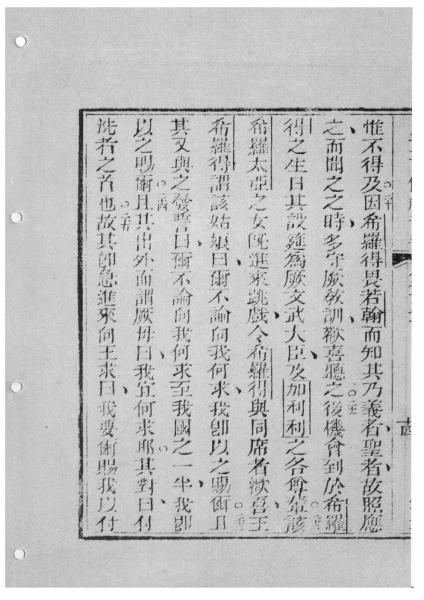 惟不得及因希羅得畏若翰而知其乃義者聖者故照應
之而聞之之時多守厥教訓歡喜聽之後機會到於希羅
得之生日其設筵為厥文武大臣及加利利之各爵輩該
希羅太亞之女旣進來跳戲令希羅得與同席者歡喜王
希羅得謂該姑娘曰爾不論向我何求我卽以之賜爾且
其又與之發誓曰爾不論向我何求至我國之一半我卽
以之賜爾且其出外而謂厥母曰我宜何求耶其對曰付
洗者之首也故其卽急進來向王求曰我要爾賜我以付